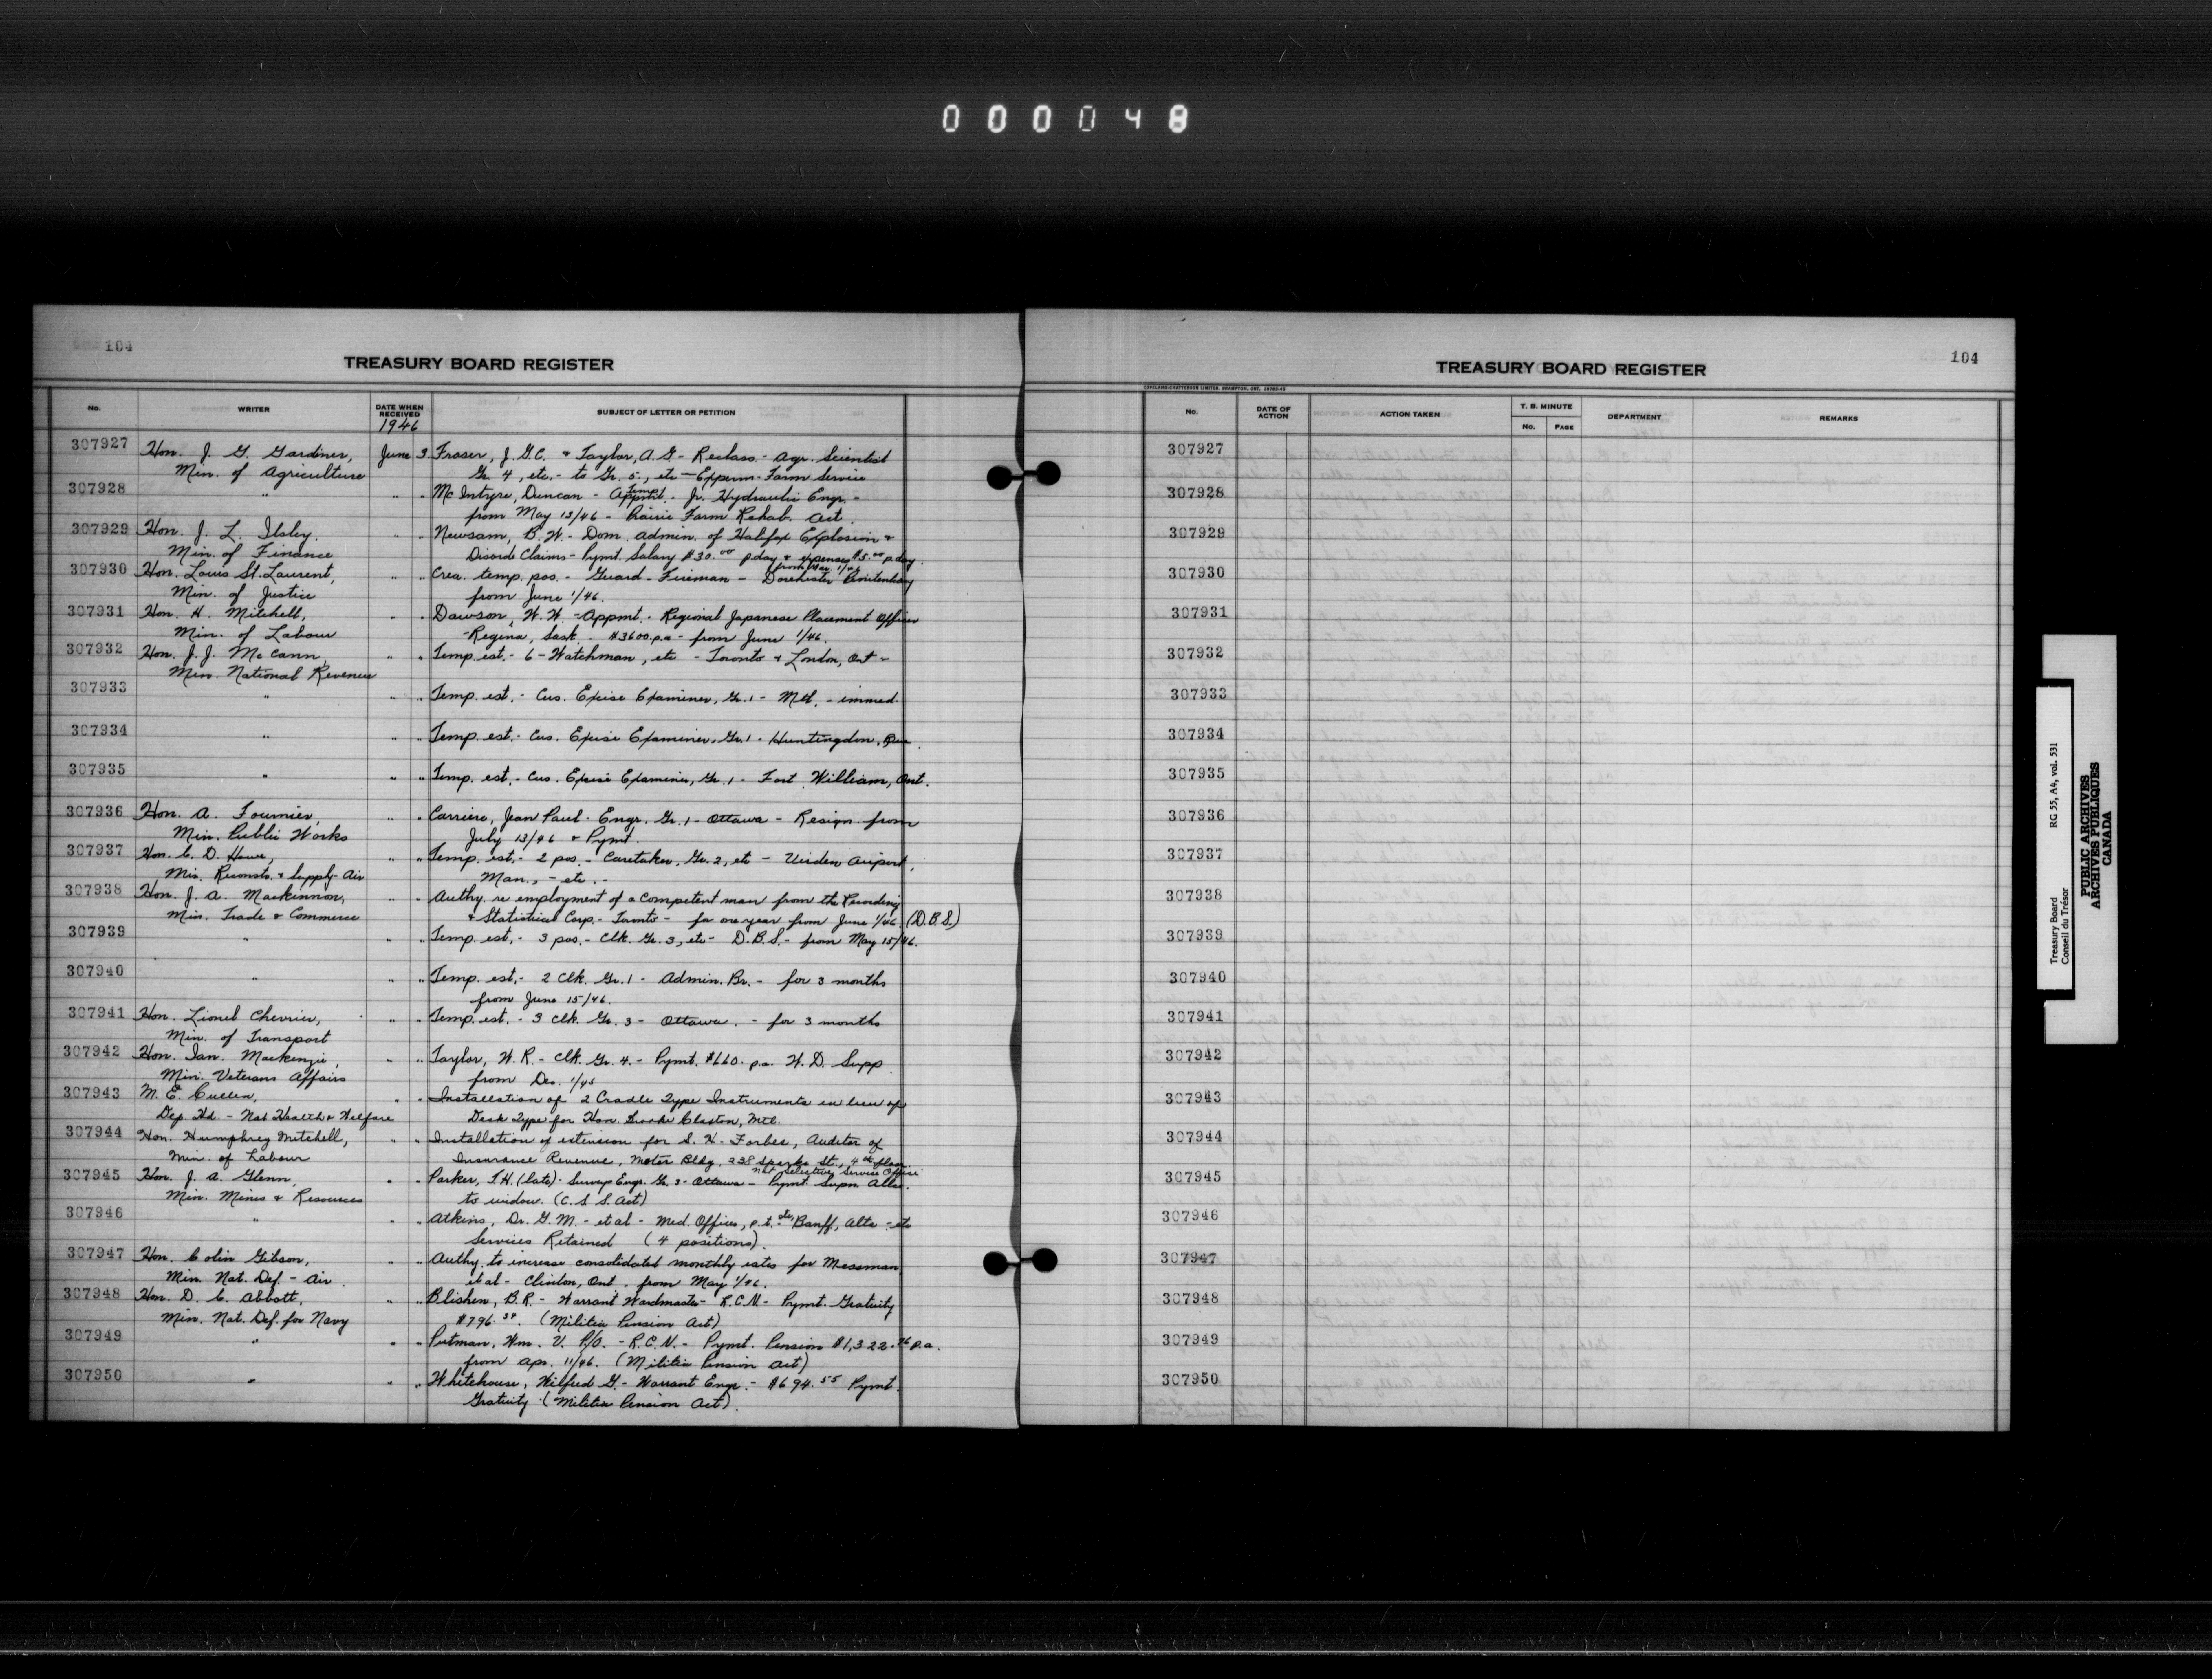 000048
104
TREASURY BOARD REGISTER
No.
WRITER
DATE WHEN RECEIVED
1946
SUBJECT OF LETTER OR PETITION
307927 Hon. J. G. Gardiner, June 3. Fraser, J.G.C. & Taylor, A.G - Reclass. - Agr. Scientist
Min. of Agriculture Gr. 4, etc. - to Gr. 5, etc - Experm. Farm Service
307928 " " " McIntyre, Duncan - Temp. Appmt. - Jr. Hydraulic Engr. -
from May 13/46 - Prairie Farm Rehab. Act.
307929 Hon. J. L. Ilsley. " Newsam, B.W. - Dom. Admin. of Halifax Explosion &
Min. of Finance Disorde Claims - Pymt. Salary $30.00 p day & expenses $5.00 p. day.
from May 1/46
307930 Hon. Louis St. Laurent, " " Crea. temp. pos. - Guard - Fireman - Dorchester Penitentiary
Min. of Justice from June 1/46.
307931 Hon. H. Mitchell, " " Dawson, W.W. - Appmt. - Regional Japanese Placement Officer
Min. of Labour - Regina, Sask. - $3600. p.a - from June 1/46.
307932 Hon. J. J. McCann, " " Temp. est. - 6 - Watchman, etc - Toronto & London, Ont -
Min. National Revenue
307933 " " " Temp. est. - Cus. Excise Examiner, Gr. 1 - Mtl. - immed.
307934 " " " Temp. est. - Cus. Excise Examiner, Gr. 1 - Huntingdon, Que.
307935 " " " Temp. est. - Cus. Excise Examiner, Gr. 1 - Fort William, Ont.
307936 Hon. A. Fournier, " " Carriere, Jean Paul - Engr. Gr. 1 - Ottawa - Resign. from
Min. Public Works July 13/46 & Pymt.
307937 Hon. C. D. Howe, " " Temp. est. - 2 pos. - Caretaker, Gr. 2, etc - Virden Airport,
Min. Reconstr. & Supply - Air Man., - etc. -
307938 Hon. J. A. Mackinnon, " " Authy. re employment of a competent man from the Recording
Min. Trade & Commerce & Statistical Corp. - Toronto - for one year from June 1/46. (D.B.S.)
307939 " " " Temp. est. - 3 pos. - Clk. Gr. 3, etc - D.B.S. - from May 15/46.
307940 " " " Temp. est. - 2 Clk. Gr. 1 - Admin. Br. - for 3 months
from June 15/46.
307941 Hon. Lionel Chevrier, " " Temp. est. - 3 Clk. Gr. 3 - Ottawa. - for 3 months
Min. of Transport
307942 Hon. Ian. Mackenzie, " " Taylor, W. R. - Clk. Gr. 4. - Pymt. $660. p.a. W. D. Supp.
Min. Veterans Affairs from Dec. 1/45
307943 M. E. Cullen, " " Installation of 2 Cradle Type Instruments in lieu of
Dep. Hd. - Nat Health & Welfare Desk Type for Hon. Brooke Claxton, Mtl.
307944 Hon. Humphrey Mitchell, " " Installation of extension for S. H. Forbes, Auditor of
Min. of Labour Insurance Revenue, Motor Bldg. 238 Sparks St., 4th floor.
Nat Selective Service Office
307945 Hon. J. A. Glenn, " " Parker, T.H. (late) - Surveys Engr. Gr. 3 - Ottawa - Pymt. Supn. Allce.
Min. Mines & Resources to widow. (C. S. S. Act)
307946 " " " Atkins, Dr. G. M. - et al - Med. Officer, p.t. Banff, Alta - etc
Services Retained (4 positions).
307947 Hon. Colin Gibson, " " Authy. to increase consolidated monthly rates for Messman
Min. Nat. Def. - Air. et al - Clinton, Ont. from May 1/46.
307948 Hon. D. C. Abbott, " " Blishen, B.R. - Warrant Wardmaster - R.C.N. - Pymt. Gratuity
Min. Nat. Def. for Navy $796.34. (Militia Pension Act)
307949 " " " Putman, Wm. V. P/O. - R.C.N. - Pymt. Pension $1,322.76 p.a.
from Apr. 11/46. (Militia Pension Act)
307950 " " " Whitehouse, Wilfred G. - Warrant Engr. - $694.55 Pymt.
Gratuity (Militia Pension Act).
104
TREASURY BOARD REGISTER
COPELAND-CHATTERSON LIMITED, BRAMPTON, ONT.
No.
DATE OF ACTION
ACTION TAKEN
T. B. MINUTE
No. PAGE
DEPARTMENT
REMARKS
307927
307928
307929
307930
307931
307932
307933
307934
307935
307936
307937
307938
307939
307940
307941
307942
307943
307944
307945
307946
307947
307948
307949
307950
Treasury Board RG 55, A4, vol. 531
Conseil du Trésor
PUBLIC ARCHIVES
ARCHIVES PUBLIQUES
CANADA